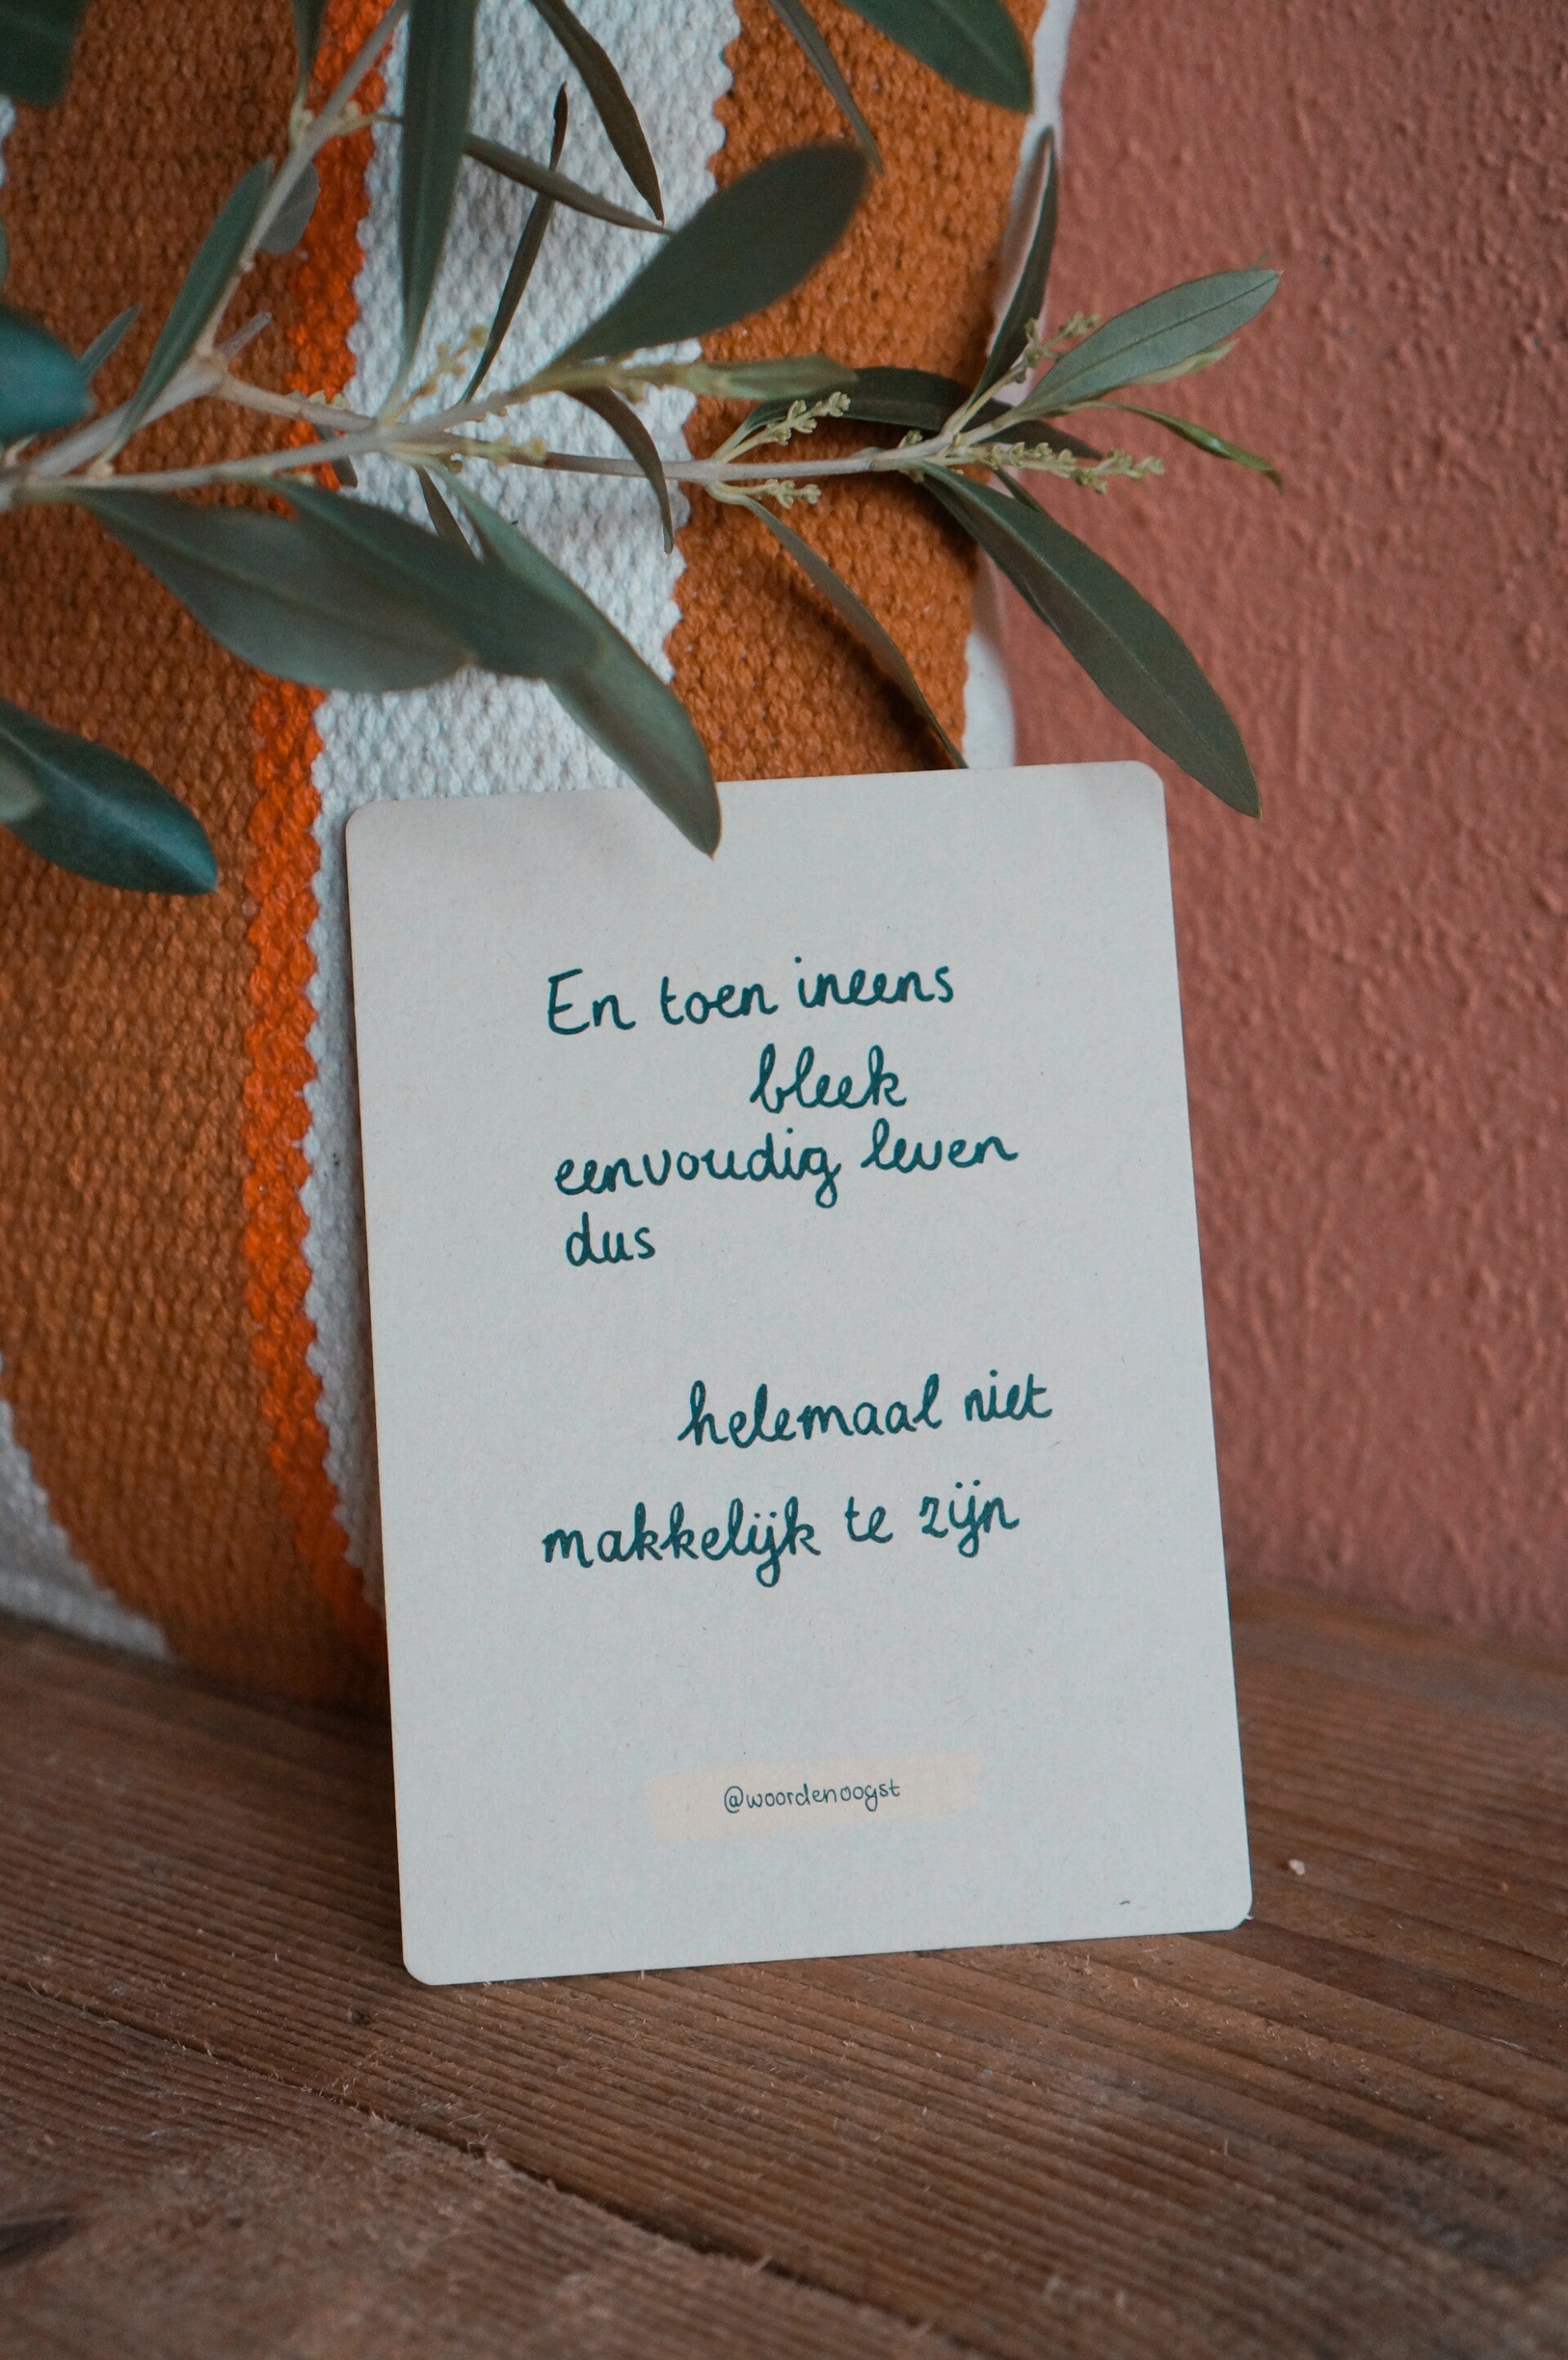 En toen ineens
bleek
eenvoudig leven
dus
helemaal niet
makkelijk te zijn
@woordenoogst